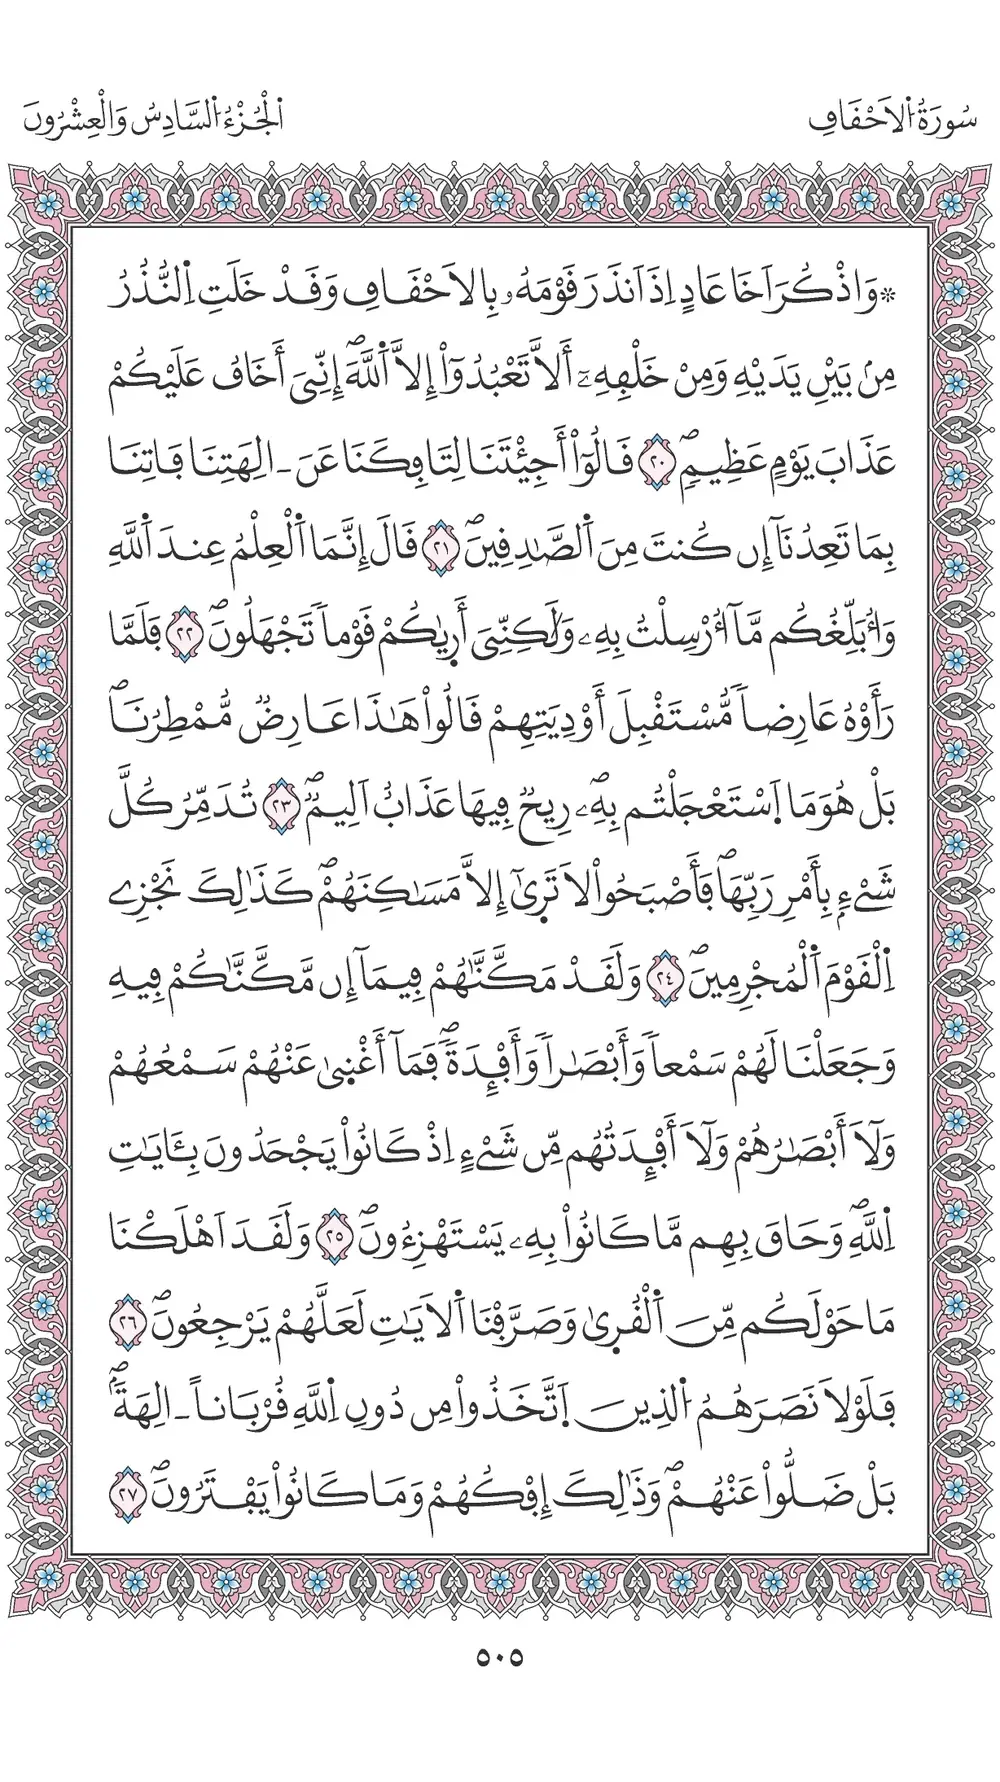 سُورَةُ اُ۬لَاحْقَافِ
اَ۬لْجُزْءُ اُ۬لسَّادِسُ وَالْعِشْرُونَ
۞وَاذْكُرَ اَخَا عَادٍ اِذَ اَنذَرَ قَوْمَهُۥ بِالَاحْقَافِ وَقَدْ خَلَتِ اِ۬لنُّذُرُ
مِنۢ بَيْنِ يَدَيْهِ وَمِنْ خَلْفِهِۦٓ أَلَّا تَعْبُدُوٓاْ إِلَّا اَ۬للَّهَۖ إِنِّيَ أَخَافُ عَلَيْكُمْ
عَذَابَ يَوْمٍ عَظِيمٖۖ ٢٠ قَالُوٓاْ أَجِئْتَنَا لِتَافِكَنَا عَنَ ـ الِهَتِنَا فَاتِنَا
بِمَا تَعِدُنَآ إِن كُنتَ مِنَ اَ۬لصَّٰدِقِينَۖ ٢١ قَالَ إِنَّمَا اَ۬لْعِلْمُ عِندَ اَ۬للَّهِ
وَأُبَلِّغُكُم مَّآ أُرْسِلْتُ بِهِۦ وَلَٰكِنِّيَ أَر۪يٰكُمْ قَوْماٗ تَجْهَلُونَۖ ٢٢ فَلَمَّا
رَأَوْهُ عَارِضاٗ مُّسْتَقْبِلَ أَوْدِيَتِهِمْ قَالُواْ هَٰذَا عَارِضٞ مُّمْطِرُنَاۖ
بَلْ هُوَ مَا اَ۪سْتَعْجَلْتُم بِهِۦۖ رِيحٞ فِيهَا عَذَابٌ اَلِيمٞۖ ٢٣ تُدَمِّرُ كُلَّ
شَيْءِۢ بِأَمْرِ رَبِّهَاۖ فَأَصْبَحُواْ لَا تَر۪ىٰٓ إِلَّا مَسَٰكِنَهُمْۖ كَذَٰلِكَ نَجْزِے
اِ۬لْقَوْمَ اَ۬لْمُجْرِمِينَۖ ٢٤ وَلَقَدْ مَكَّنَّٰهُمْ فِيمَآ إِن مَّكَّنَّٰكُمْ فِيهِ
وَجَعَلْنَا لَهُمْ سَمْعاٗ وَأَبْصَٰراٗ وَأَفْـِٕدَةٗۖ فَمَآ أَغْن۪ىٰ عَنْهُمْ سَمْعُهُمْ
وَلَآ أَبْصَٰرُهُمْ وَلَآ أَفْـِٕدَتُهُم مِّن شَيْءٍ اِذْ كَانُواْ يَجْحَدُونَ بِـَٔايَٰتِ
اِ۬للَّهِۖ وَحَاقَ بِهِم مَّا كَانُواْ بِهِۦ يَسْتَهْزِءُونَۖ ٢٥ وَلَقَدَ اَهْلَكْنَا
مَا حَوْلَكُم مِّنَ اَ۬لْقُر۪ىٰ وَصَرَّفْنَا اَ۬لَايَٰتِ لَعَلَّهُمْ يَرْجِعُونَۖ ٢٦
فَلَوْلَا نَصَرَهُمُ اُ۬لذِينَ اَ۪تَّخَذُواْ مِن دُونِ اِ۬للَّهِ قُرْبَاناً ـ الِهَةَۢۖ
بَلْ ضَلُّواْ عَنْهُمْۖ وَذَٰلِكَ إِفْكُهُمْ وَمَا كَانُواْ يَفْتَرُونَۖ ٢٧
٥٠٥